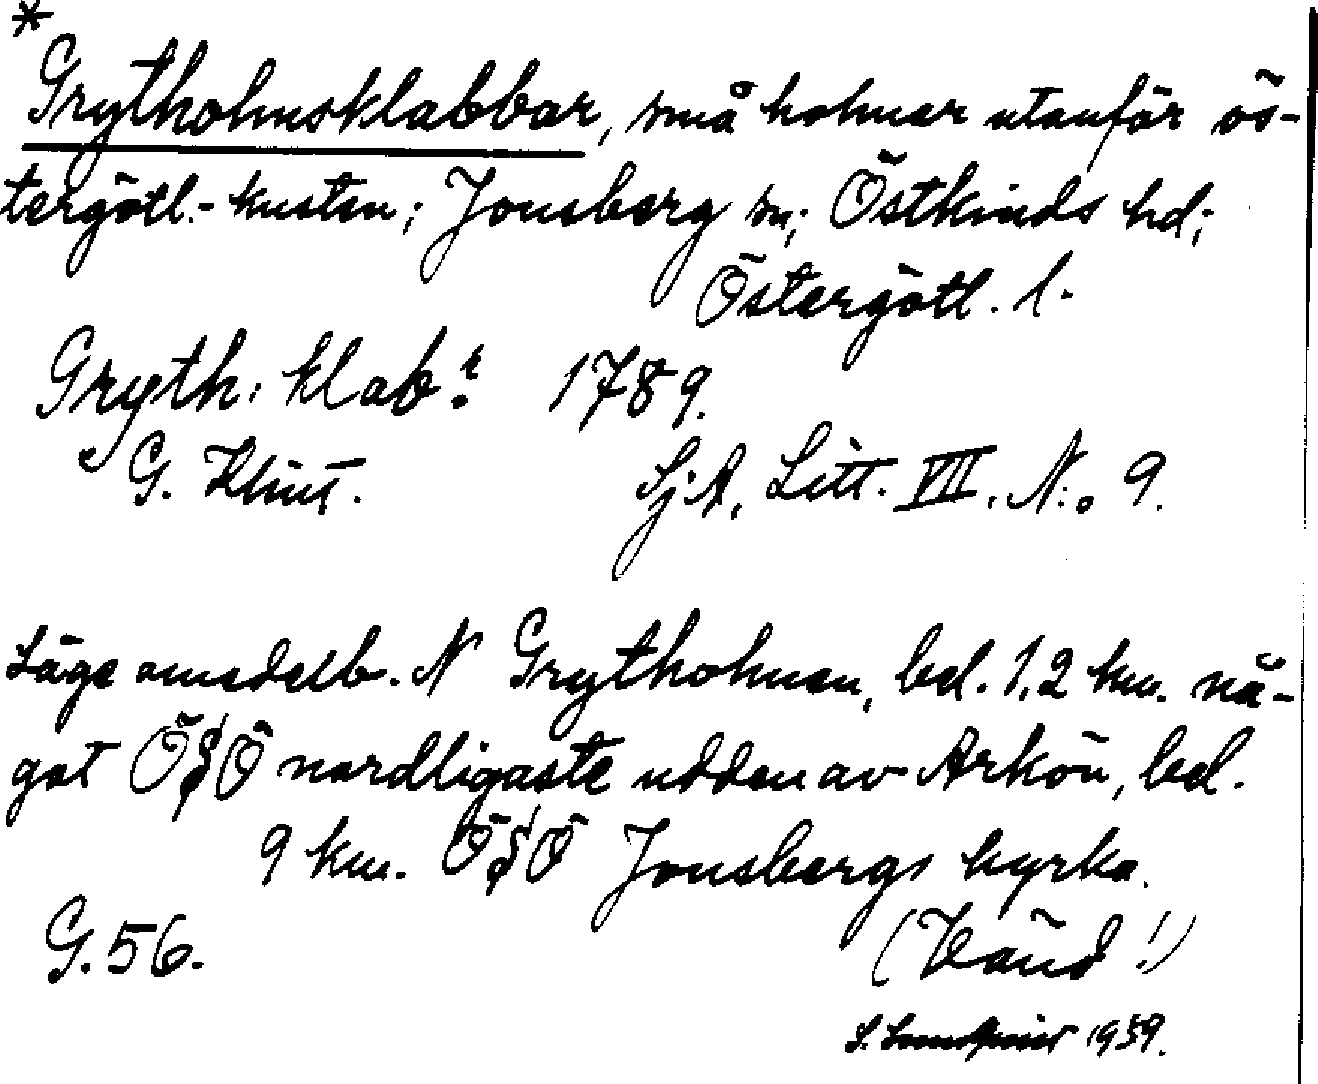 *
Grytholmsklabbar, små holmar utanför ös-
tergötl.- kusten; Jonsberg sn; Östkinds hd;
Östergötl. l.
Gryth. klab:r 1789.
G. Klint. SjA, Litt. VII. N:o 9.
Läge omedelb. N Grytholmen, bel. 1,2 km. nå-
got ÖSÖ nordligaste udden av Arkön, bel.
9 km. ÖSÖ Jonsbergs kyrka.
G.56. (Vänd!)
1939.